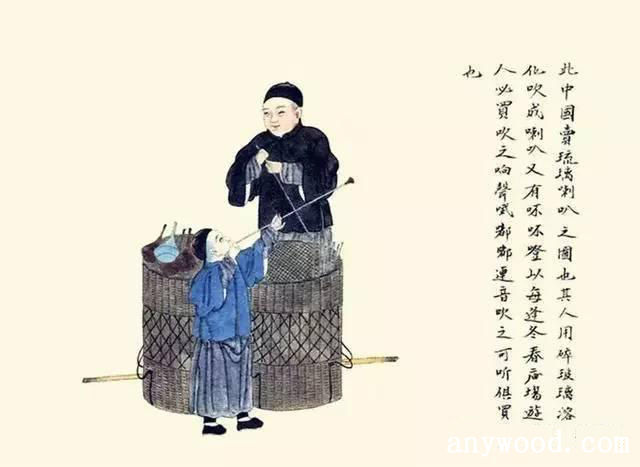 此中國賣琉璃喇叭之圖也其人用碎玻璃溶
化吹成喇叭又有吥吥噔以每逢冬春場遊
人必買吹之响聲嘟嘟連音吹之可听俱買
也
www.anywood.com